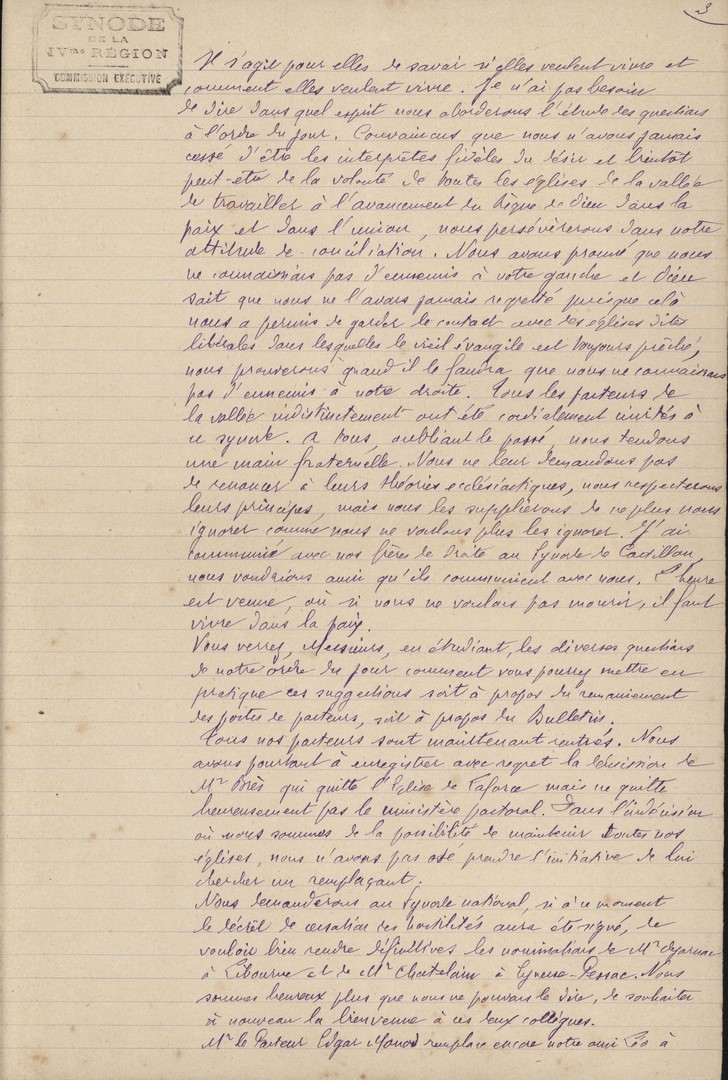 3
SYNODE
DE LA
IVme RÉGION
COMMISSION EXÉCUTIVE
Il s'agit pour elles de savoir si elles veulent vivre et
comment elles veulent vivre. Je n'ai pas besoin
de dire dans quel esprit nous aborderons l'étude des questions
à l'ordre du jour. Convaincus que nous n'avons jamais
cessé d'être les interprètes fidèles du désir et bientôt
peut-être de la volonté de toutes les églises de la vallée
de travailler à l'avancement du Règne de Dieu dans la
paix et dans l'union, nous persévèrerons dans notre
attitude de conciliation. Nous avons prouvé que nous
ne connaissions pas d'ennemis à notre gauche et Dieu
sait que nous ne l'avons jamais regretté puisque celà
nous a permis de garder le contact avec des églises dites
libérales dans lesquelles le vieil évangile est toujours prêché,
nous prouverons quand il le faudra que nous ne connaissons
pas d'ennemis à notre droite. Tous les pasteurs de
la vallée indistinctement ont été cordialement invités à
ce synode. A tous, oubliant le passé, nous tendons
une main fraternelle. Nous ne leur demandons pas
de renoncer à leurs théories ecclésiastiques, nous respecterons
leurs principes, mais nous les supplierons de ne plus nous
ignorer comme nous ne voulons plus les ignorer. J'ai
communié avec nos frères de droite au Synode de Castillon,
nous voudrions aussi qu'ils communient avec nous. L'heure
est venue, où si nous ne voulons pas mourir, il faut
vivre dans la paix.
Vous verrez, Messieurs, en étudiant, les diverses questions
de notre ordre du jour comment vous pourrez mettre en
pratique ces suggestions soit à propos du remaniement
des postes de pasteurs, soit à propos du Bulletin.
Tous nos pasteurs sont maintenant rentrés. Nous
avons pourtant à enregistrer avec regret la décision de
Mr Brès qui quitte l'Eglise de Laforce mais ne quitte
heureusement pas le ministère pastoral. Dans l'indécision
où nous sommes de la possibilité de maintenir toutes nos
églises, nous n'avons pas osé prendre l'initiative de lui
chercher un remplaçant.
Nous demanderons au Synode national, si à ce moment
le décret de cessation des hostilités aura été signé, de
vouloir bien rendre définitives les nominations de Mr
à Libourne et de Mr Chatelain à Eynesse-Pessac. Nous
sommes heureux plus que nous ne pouvons le dire, de souhaiter
à nouveau la bienvenue à ces deux collègues.
Mr le Pasteur Edgar Monod remplace encore notre ami Léo à